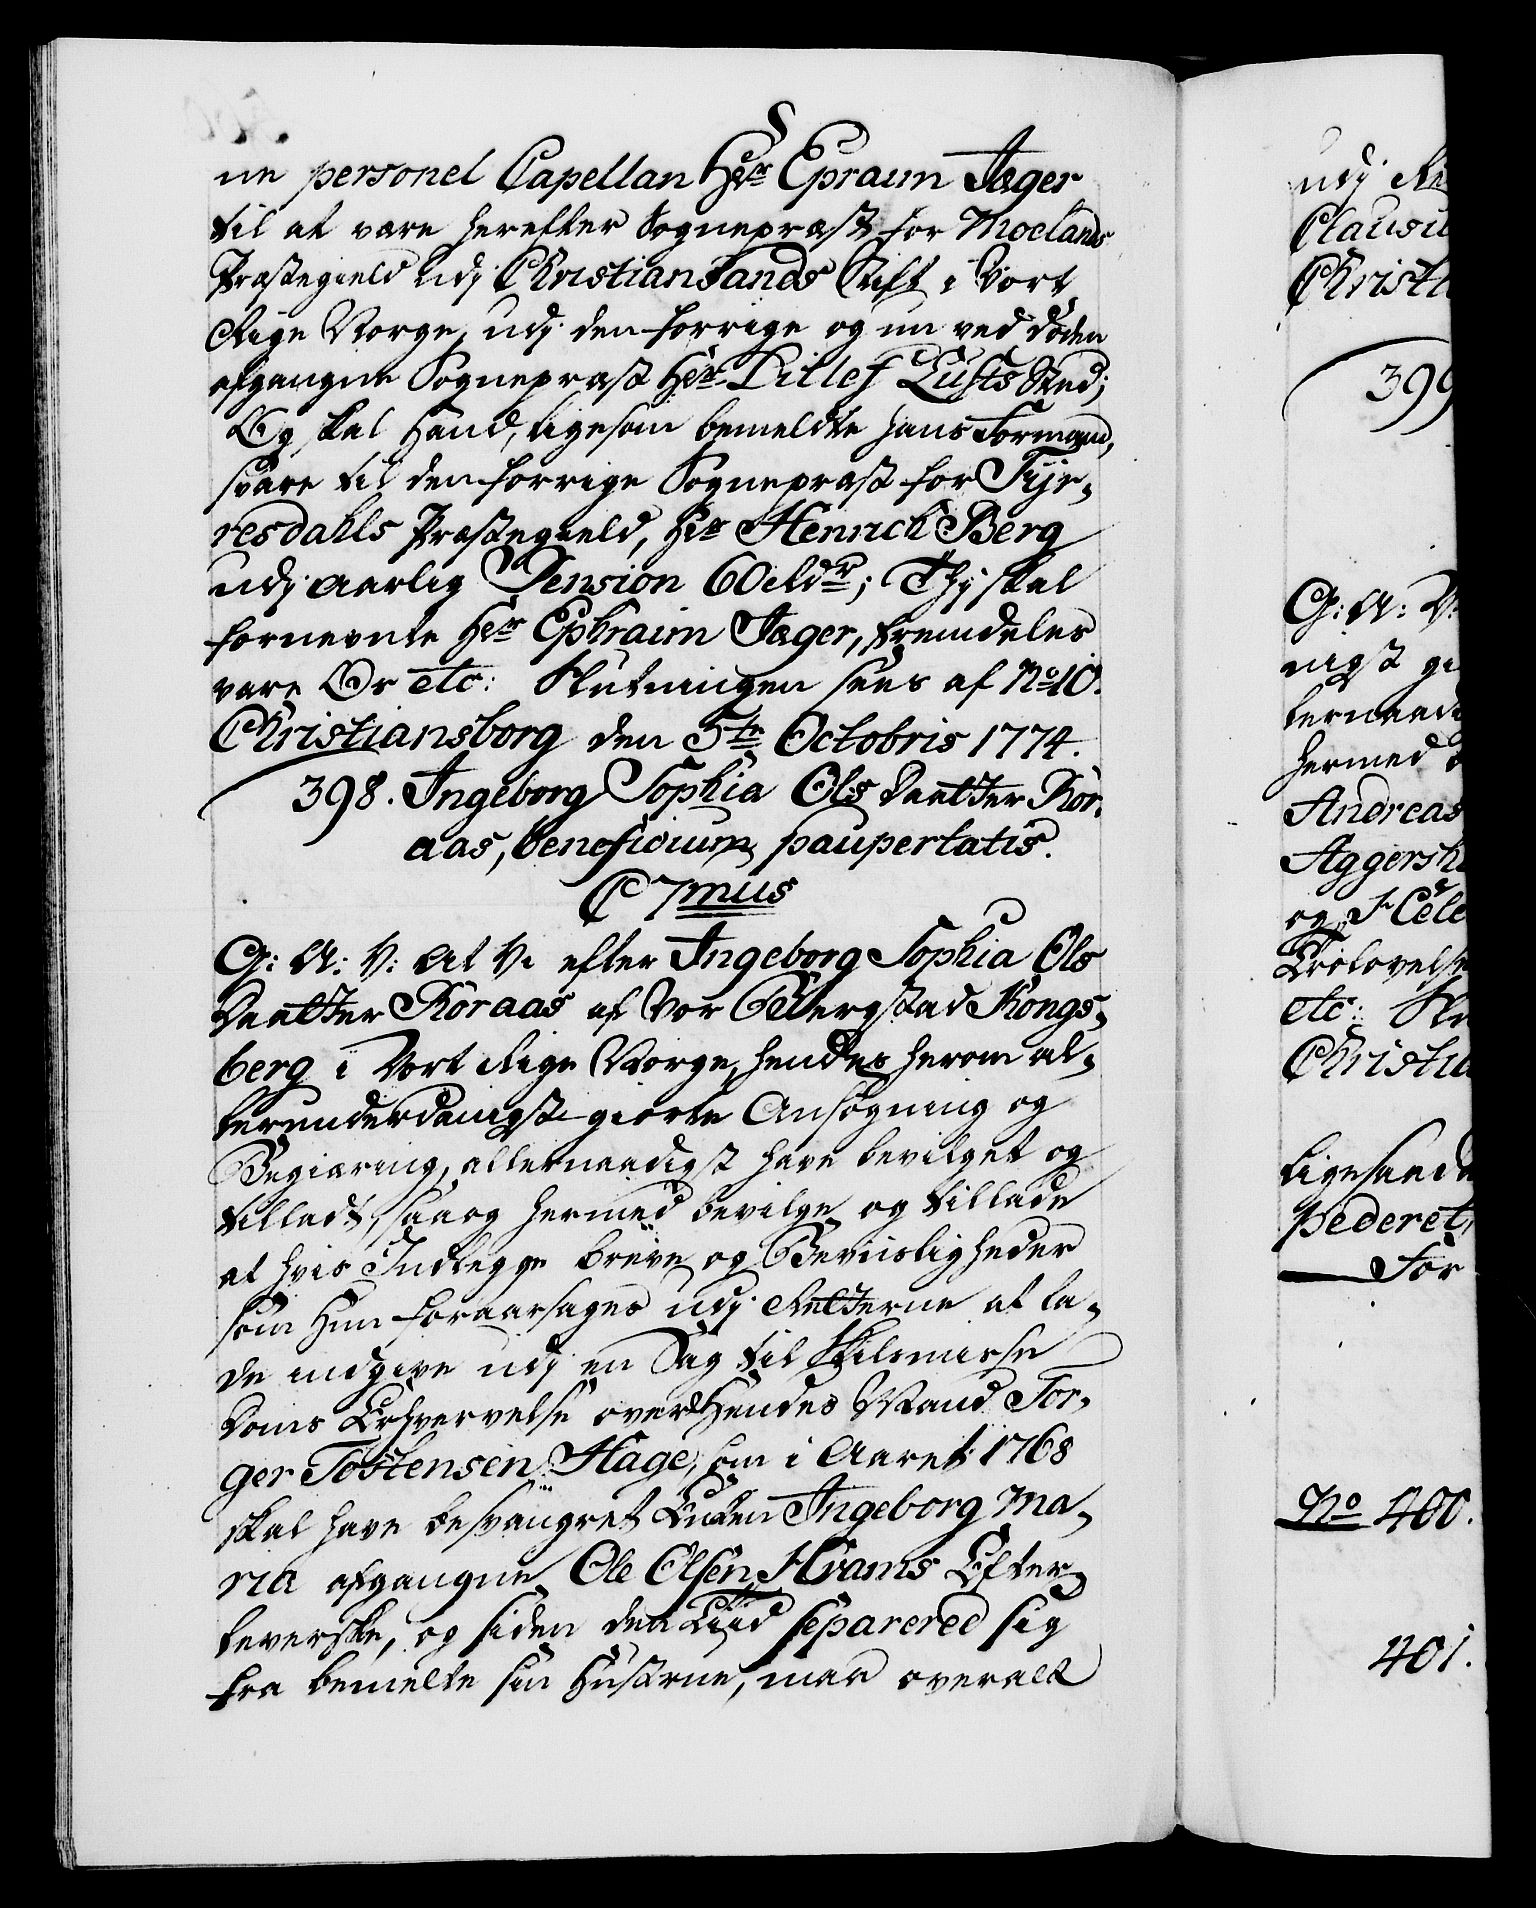 ne personel Capellan Hr Epraim Jæger
til at være herefter Sognepræst for Moelands
Præstegield udj Christiansands Stift i Vort
Rige Norge, udj den forrige og nu ved døden
afgangne Sognepræst Hr Ditlef Lusts Sted;
Og skal Hand, ligesom bemeldte hans Formand,
svare til den forrige Sognepræst for Tyr-
resdahls Præstegield, Hr Henrich Berg
udj aarlig Pension 60 Rdr; Thj skal
fornevnte Hr Ephraim Jæger, fremdeles
være Or etc: Slutningen sees af No 10.
Christiansborg den 5te Octobris 1774.
398. Ingeborg Sophia Ols Daatter Kor-
aas, beneficium paupertatis.
C 7mus
G: A: V: At Vi efter Ingeborg Sophia Ols
Daatter Koraas af Vor Bergstad Kongs-
berg i Vort Rige Norge, hendes herom al-
lerunderdanigst giorte Ansøgning og
Begiæring, allernaadigst have bevilget og
tilladt, saa og hermed bevilge og tillade
at hvis Indlegge breve og Beviisligheder
som Hun foraarsages udj Retterne at la-
de indgive udj en Sag til Skilsmisse
Doms Erhvervelse over Hendes Mand Tor-
ger Tostensen Hage, som i Aaret 1768
skal have besvangret Enken Ingeborg Ma-
ria afgangne Ole Olsen Hrams Efter-
leverske, og siden den Tiid separered sig
fra bemelte sin Hustrue, maa overalt
udj Ri
Clausu
Christi
399
G: A: V:
nigst gi
lernaadi
hermed
Andreas
Aggersh
og
Trolovelse
etc: Sl
Christia
ligesaad
pederet,
For
No 400.
401.